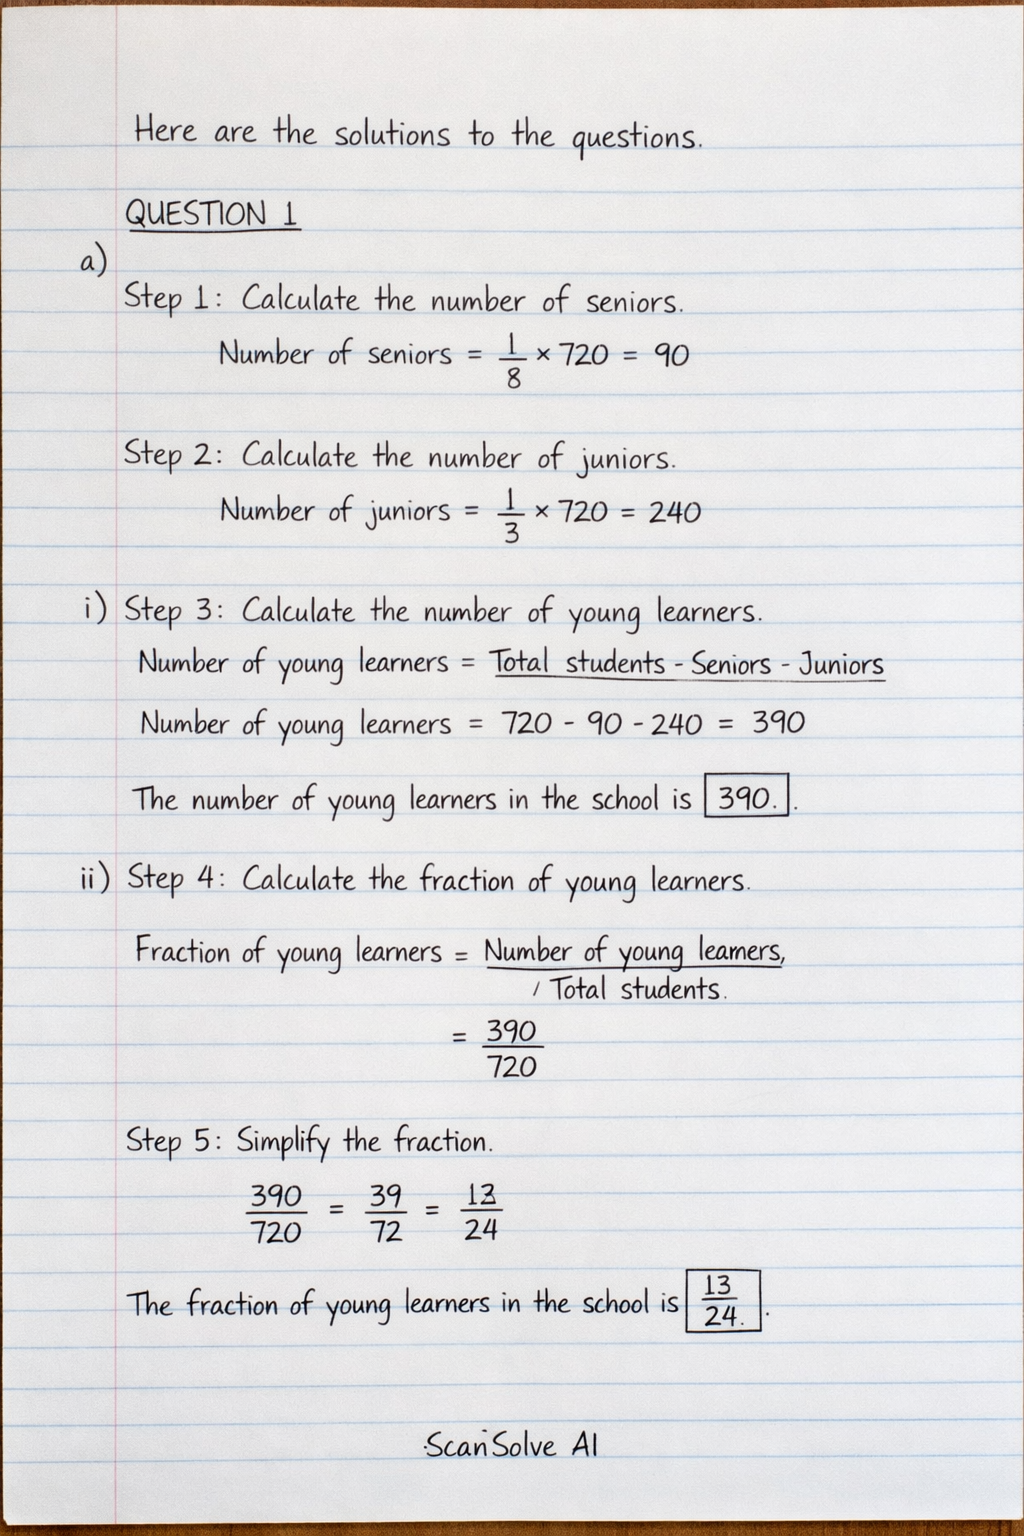 Here are the solutions to the questions.
QUESTION 1
a)
Step 1: Calculate the number of seniors.
Number of seniors = 1/8 × 720 = 90
Step 2: Calculate the number of juniors.
Number of juniors = 1/3 × 720 = 240
i) Step 3: Calculate the number of young learners.
Number of young learners = Total students - Seniors - Juniors
Number of young learners = 720 - 90 - 240 = 390
The number of young learners in the school is 390..
ii) Step 4: Calculate the fraction of young learners.
Fraction of young learners = Number of young learners,
/ Total students.
= 390/720
Step 5: Simplify the fraction.
390/720 = 39/72 = 13/24
The fraction of young learners in the school is 13/24..
ScanSolve AI